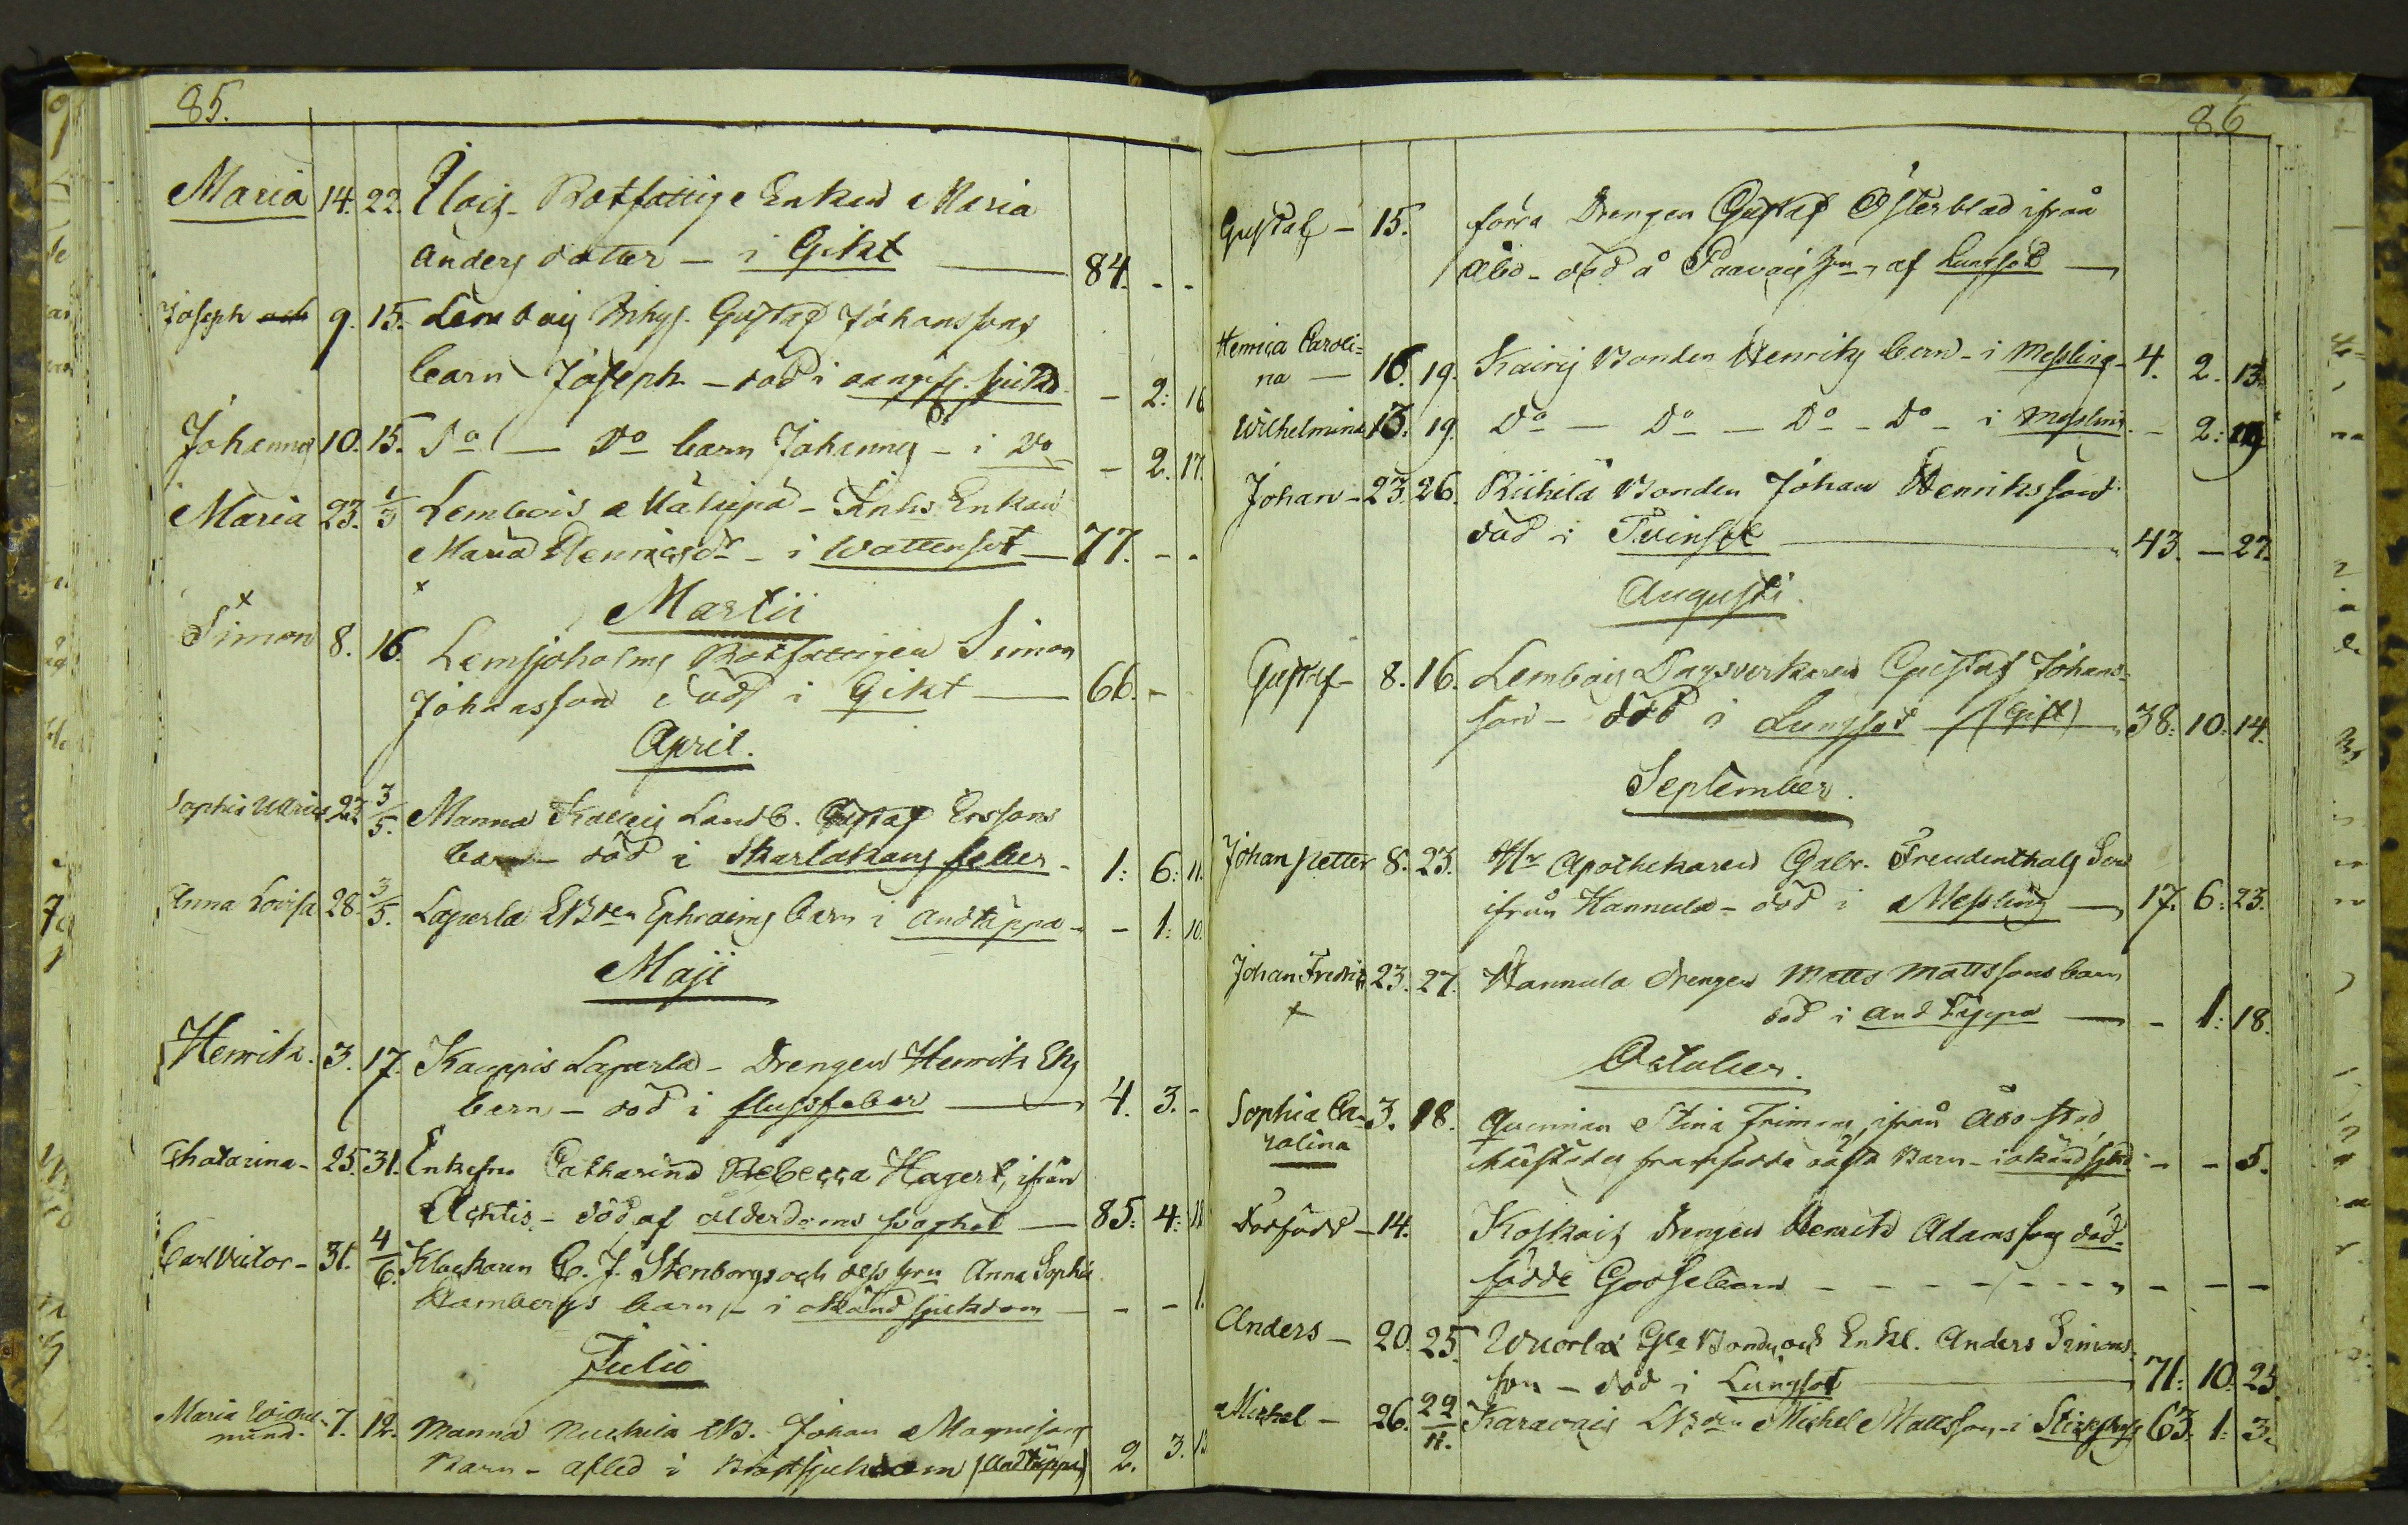 85.
Maria 14. 22. Enkan Maria
Anders dotter – i Gikt 84. - -
Joseph 9. 15. Gustaf Johanssons
barn Joseph – död i - 2: 16
Johannes 10. 15. Do — Do barn Johannes – i Do - 2. 17.
Maria 23. 1/3 Lembois – Enkan
Maria Henricsdr – i Wattensot — 77. - -
Martii
Simon 8. 16. Lemsjöholms Simon
Johansson död i Gikt — 66. -
April.
Sophia Ulrica 23 3/5. Manna Landb. Gustaf Erssons
barn – död i Skarlakans feber - 1: 6: 11.
Anna Lovisa 28. 3/5. Laperla Ephraims barn i andtäppa - - 1: 10.
Maji
Henrik. 3. 17. Kauppis Laperla – Drengen Henrik
barn – död i flussfeber — 4. 3. -
Chatarina - 25. 31. Enkefru Catharina Rebecca Hagert, ifrån
– död af ålderdoms svaghet — 85: 4: 11
Carl Victor - 31. 4/6. Klockaren C. J. Stenborgs och dess fru Anna Sophia
barn – i okänd sjukdom — - - 1.
Julii
Maria Wilhel-
mina. 7. 12. Manna Johan
Barn – afled i Bröstsjukdom (Andtäppa) 2. 3. 13
86
Gustaf - 15. förra Drengen Gustaf Österblad ifrån
Åbo – död å af Lungsot —
Henrica Caroli=
na — 16. 19. Bonden Henriks barn – i Messling - 4. 2. 13.
Wilhelmina 13. 19. Do — Do — Do - Do - i Messling - 2: 19
Johan - 23. 26. Bonden Johan Henriksson
död i Tvinsot — 43. — 27.
Augusti.
Gustaf 8. 16. Lembois Dagsverkaren Gustaf Johans-
son – död i Lungsot — (Gift) 38: 10: 14.
September.
Johan Petter 8. 23. Hr Apothekaren Gabr. Freudenthals Son
ifrån Hannula – död i Messling — 17. 6: 23.
Johan Fredrik 23. 27. Hannula Drengen Matts Mattssons barn
död i andtäppa — - 1: 18.
October.
Sophia Ca-
rolina 3. 18. Quinnan Stina ifrån Åbo stad
framfödda oäkta Barn – i okänd sjukd. - - 5.
Dödfödd - 14. Koskois Drengen Henrik Adamssons död-
födde Gossebarn - - - - - - - -
Anders - 20. 25. Wuorla Gla Bonden och Enkl. Anders Simons-
son – död i Lungsot — 71: 10: 25
Michel - 26. 22/11. Michel Mattsson – i 63. 1: 3.